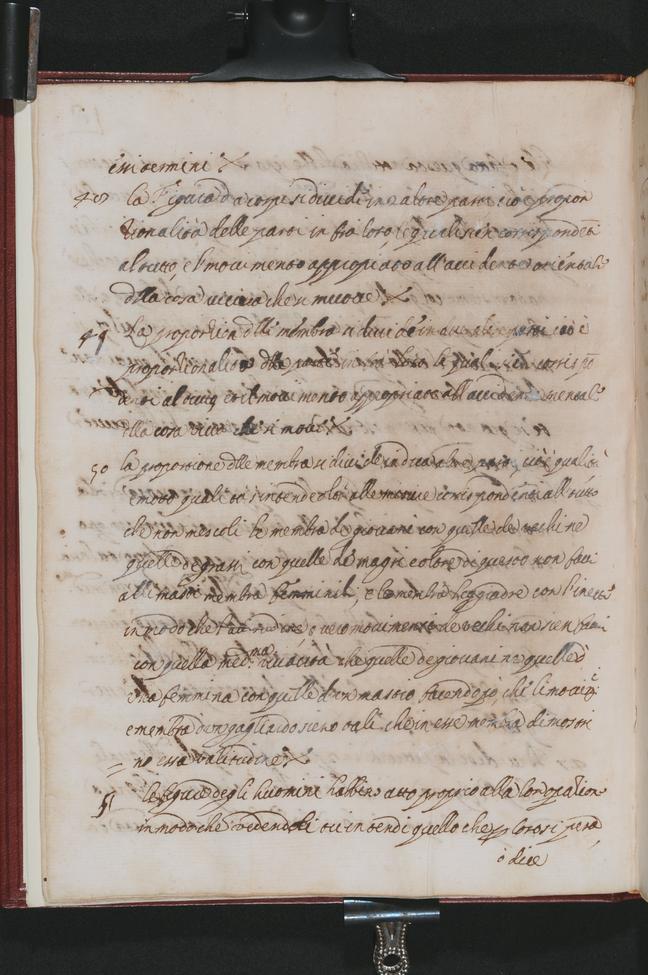 essi termini
48 la Figura d'a corpi si divide in 2 altre parti cioè propor
tionalità delle parti in fra loro, e quali sien correspondeti
al tutto, e'l movimento appropiato all'accidente
della cosa viva che si muove
49 La proportion delle membra si divide in due altre parti cioè
proportionalità delle parti in fra loro la quali sien corrispo
denti al tutto, et il movimento appropriato all'accidente mental
della cosa viva che si move
50 la proportione delle membra si divide in due altre parti, cioè qualità
e moto qualità s'intende oltre alle misure correspondenti all tutto
che non mescoli le membra de giovani con quelle de vechi ne
quelle de grassi con quelle de magri e oltre di questo non facci
alli maschi membra femminili, e le membra leggiadre con l'inette
in modo che l'attitudine o vero movimenti de vechi non sien fatti
con quella med.ma vivacità che quelle de giovani ne quelle d'
una femmina con quelle d'un maschio facendo che li movi.ti
e membra d'un gagliardo sieno tali che in esse membra dimostri
no essa valitudine
51 le figure degli huomini habbino atto proprio alla lor operation
in modo che vedendoli tu intendi quello che per loro si pensa
ò dice